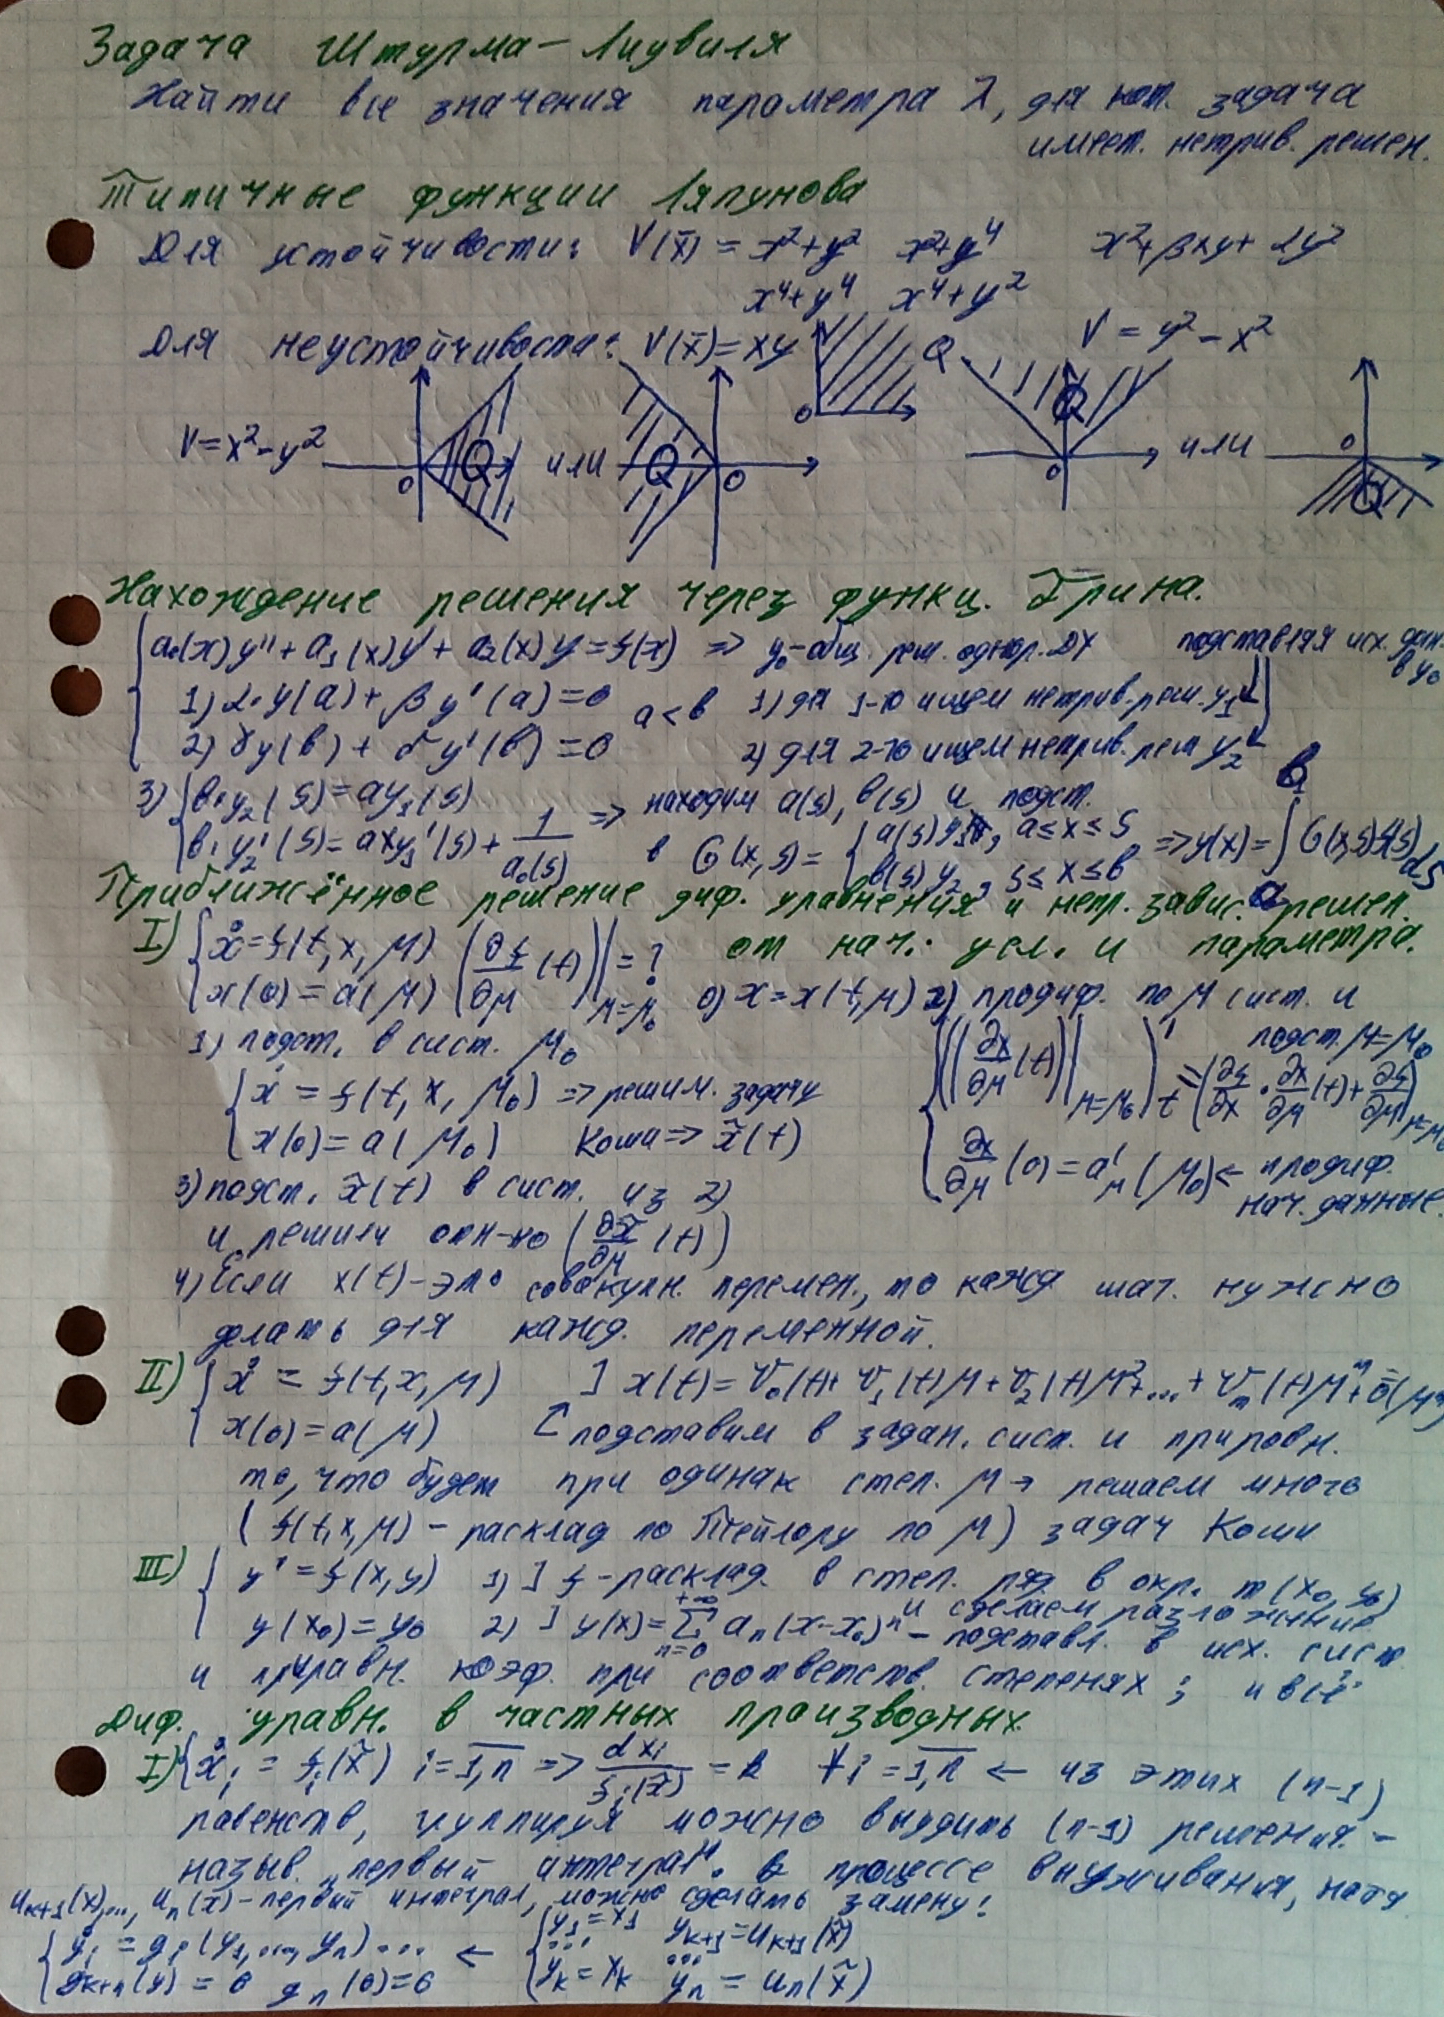 Задача Штурма-Лиувиля
Найти все значения параметра λ, для кот. задача
имеет. нетрив. решен.
Типичные функции Ляпунова
Для устойчивости: V(x̄) = x²+y² x²+y⁴ x²+βxy+αy²
x⁴+y⁴ x⁴+y²
Для неустойчивости: V(x̄)=xy Q V = y²-x²
V=x²-y² Q или Q Q или Q
Нахождение решения через функц. Грина.
a₀(x)y''+a₁(x)y'+a₂(x)y=f(x) => y₀-общ. реш. однор. ДУ подставляя исх. дан. в y₀
1) α·y(a)+βy'(a)=0 a<b 1) для 1-го ищем нетрив. реш. y₁
2) γy(b)+δy'(b)=0 2) для 2-го ищем нетрив. реш y₂
3) b·y₂(s)=ay₁(s) => находим a(s), b(s) и подст.
b·y₂'(s)=a×y₁'(s)+1/a₀(s) в G(x,s)= { a(s)y₁, a≤x≤s b(s)y₂, s≤x≤b => y(x)=∫ₐᵇ G(x,s)f(s)ds
Приближённое решение диф. уравнения и непр. завис. решен.
от нач. усл. и параметра.
I) { ẋ=f(t,x,μ) x(0)=a(μ) (∂f/∂μ(t))|μ=μ₀ = ? 0) x=x(t,μ) 2) продиф. по μ сист. и
подст. μ=μ₀
1) подст. в сист. μ₀
{ ẋ=f(t,x,μ₀) => решим. задачу
x(0)=a(μ₀) Коши => x̃(t)
((∂x/∂μ(t))|μ=μ₀)'t = (∂f/∂x·∂x/∂μ(t)+∂f/∂μ)μ=μ₀
∂x/∂μ(0)=a'μ(μ₀) ← продиф.
нач. данные.
3) подст. x̃(t) в сист. из 2)
и решили отн-но (∂x̃/∂μ(t))
4) Если x(t)-это совокупн. перемен., то кажд шаг. нужно
делать для кажд. переменной.
II) { ẋ = f(t,x,μ) ] x(t)=v₀(t)+v₁(t)μ+v₂(t)μ²+...+vₘ(t)μᵐ+ō(μᵐ)
x(0)=a(μ) подставим в задан. сист. и приравн.
то, что будет при одинак степ. μ → решаем много
(f(t,x,μ) - расклад по Тейлору по μ) задач Коши
III) { y'=f(x,y) 1) ] f-расклад. в степ. ряд в окр. т(x₀,y₀)
и сделаем разложение
y(x₀)=y₀ 2) ] y(x)=∑ₙ₌₀⁺∞ aₙ(x-x₀)ⁿ - подставл. в исх. сист
и приравн. коэф. при соответств. степенях; и всё
Диф. уравн. в частных производных
I) { ẋᵢ = fᵢ(x̃) i=1,n => dxᵢ/fᵢ(x̃) = k ∀i=1,n ← из этих (n-1)
равенств, группируя можно выудить (n-1) решения -
назыв. "первый интеграл". В процессе выуживания, хотя
uₖ₊₁(x),..., uₙ(x̄)-первый интеграл, можно сделать замену:
{ ẏᵢ = gᵢ(y₁,...,yₙ)... ← { y₁=x₁ yₖ₊₁=uₖ₊₁(x̃)
... ...
gₖ₊₁(y)=0 gₙ(0)=0 yₖ=xₖ yₙ=uₙ(x̃)